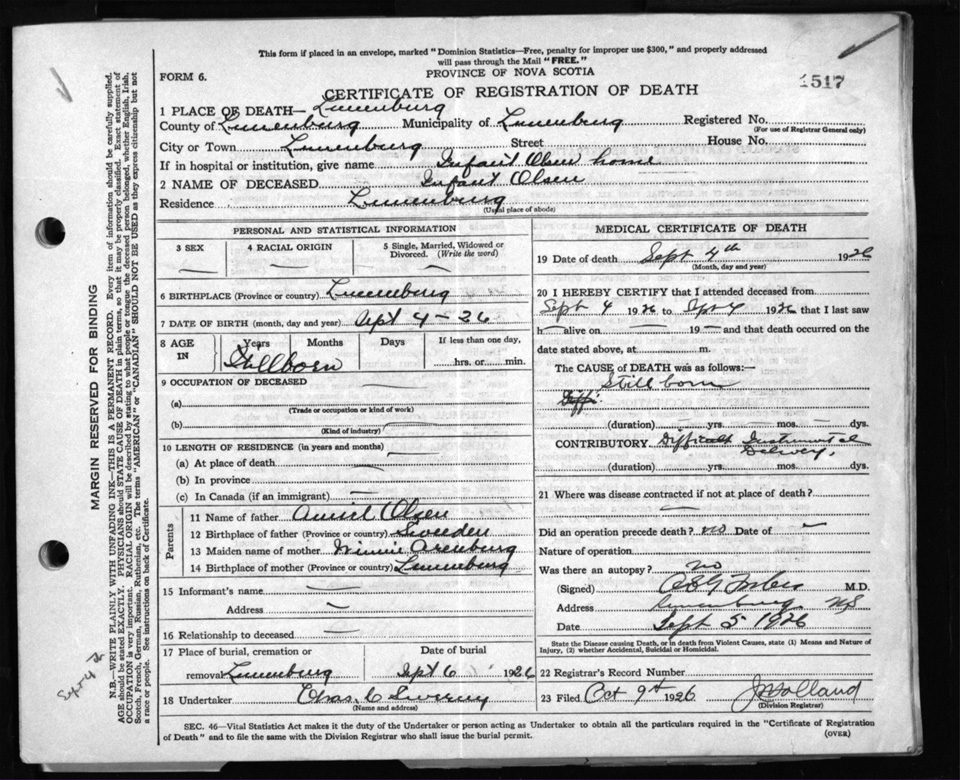 This form if placed in an envelope, marked "Dominion Statistics—Free, penalty for improper use $300," and properly addressed
will pass through the Mail "FREE."
FORM 6.
PROVINCE OF NOVA SCOTIA
1517
CERTIFICATE OF REGISTRATION OF DEATH
1 PLACE OF DEATH— Lunenburg
County of Lunenburg Municipality of Lunenburg Registered No.
(For use of Registrar General only)
City or Town Lunenburg Street House No.
If in hospital or institution, give name Infant Olsen home
2 NAME OF DECEASED Infant Olsen
Residence Lunenburg
(Usual place of abode)
PERSONAL AND STATISTICAL INFORMATION
3 SEX 4 RACIAL ORIGIN 5 Single, Married, Widowed or
Divorced. (Write the word)
6 BIRTHPLACE (Province or country) Lunenburg
7 DATE OF BIRTH (month, day and year) Sept 4-26
8 AGE IN Years Months Days If less than one day,
Stillborn hrs. or min.
9 OCCUPATION OF DECEASED
(a)
(Trade or occupation or kind of work)
(b)
(Kind of industry)
10 LENGTH OF RESIDENCE (in years and months)
(a) At place of death
(b) In province
(c) In Canada (if an immigrant)
Parents
11 Name of father Olsen
12 Birthplace of father (Province or country) Sweden
13 Maiden name of mother Minnie Arenburg
14 Birthplace of mother (Province or country) Lunenburg
15 Informant's name
Address
16 Relationship to deceased
17 Place of burial, cremation or
removal Lunenburg
Date of burial
Sept 6 1926
18 Undertaker Chas. C Sweeny
(Name and address)
MEDICAL CERTIFICATE OF DEATH
19 Date of death Sept 4th 1926
(Month, day and year)
20 I HEREBY CERTIFY that I attended deceased from
Sept 4 1926 to Sept 4 1926 that I last saw
h— alive on — 19— and that death occurred on
date stated above, at m.
The CAUSE of DEATH was as follows:—
Stillborn
Diffi
(duration) yrs. mos. dys.
CONTRIBUTORY Difficult Instrumental
Delivery.
(duration) yrs. mos. dys.
21 Where was disease contracted if not at place of death?
Did an operation precede death? no Date of —
Nature of operation
Was there an autopsy? no
(Signed) M.D.
Address Lunenburg NS
Date Sept 5 1926
State the Disease causing Death, or in death from Violent Causes, state (1) Means and Nature of
Injury, (2) whether Accidental, Suicidal or Homicidal.
22 Registrar's Record Number
23 Filed Oct 9th 1926 Holland
(Division Registrar)
SEC. 46—Vital Statistics Act makes it the duty of the Undertaker or person acting as Undertaker to obtain all the particulars required in the "Certificate of Registration
of Death" and to file the same with the Division Registrar who shall issue the burial permit.
(OVER)
MARGIN RESERVED FOR BINDING
N.B.—WRITE PLAINLY WITH UNFADING INK—THIS IS A PERMANENT RECORD. Every item of information should be carefully supplied.
AGE should be stated EXACTLY. PHYSICIANS should STATE CAUSE OF DEATH in plain terms, so that it may be properly classified. Exact statement of
OCCUPATION is very important. RACIAL ORIGIN will be described by stating to what people or tongue the deceased person belonged, whether English, Irish,
Scotch, French, German, Russian, Ruthenian, etc. The terms "AMERICAN" or "CANADIAN" SHOULD NOT BE USED as they express citizenship but not
a race or people. See instructions on back of Certificate.